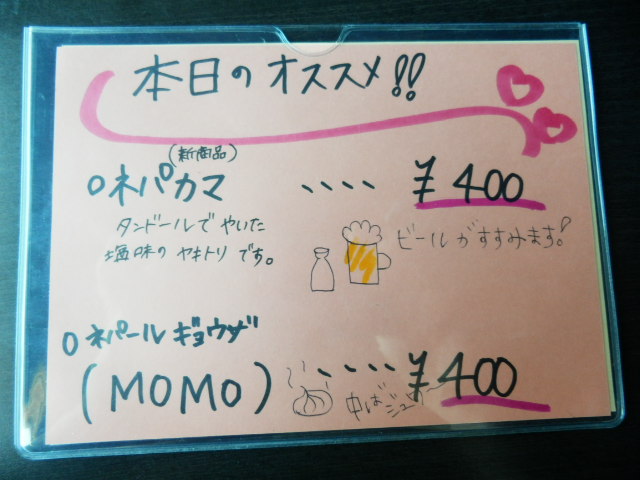 本日のオススメ!!
(新商品)
○ネパカマ 、、、、 ¥400
タンドールで やいた
塩味の ヤキトリ です。
ビールがすすみます!
○ネパール ギョウザ
(MOMO) 、、、、 ¥400
中はジューシー